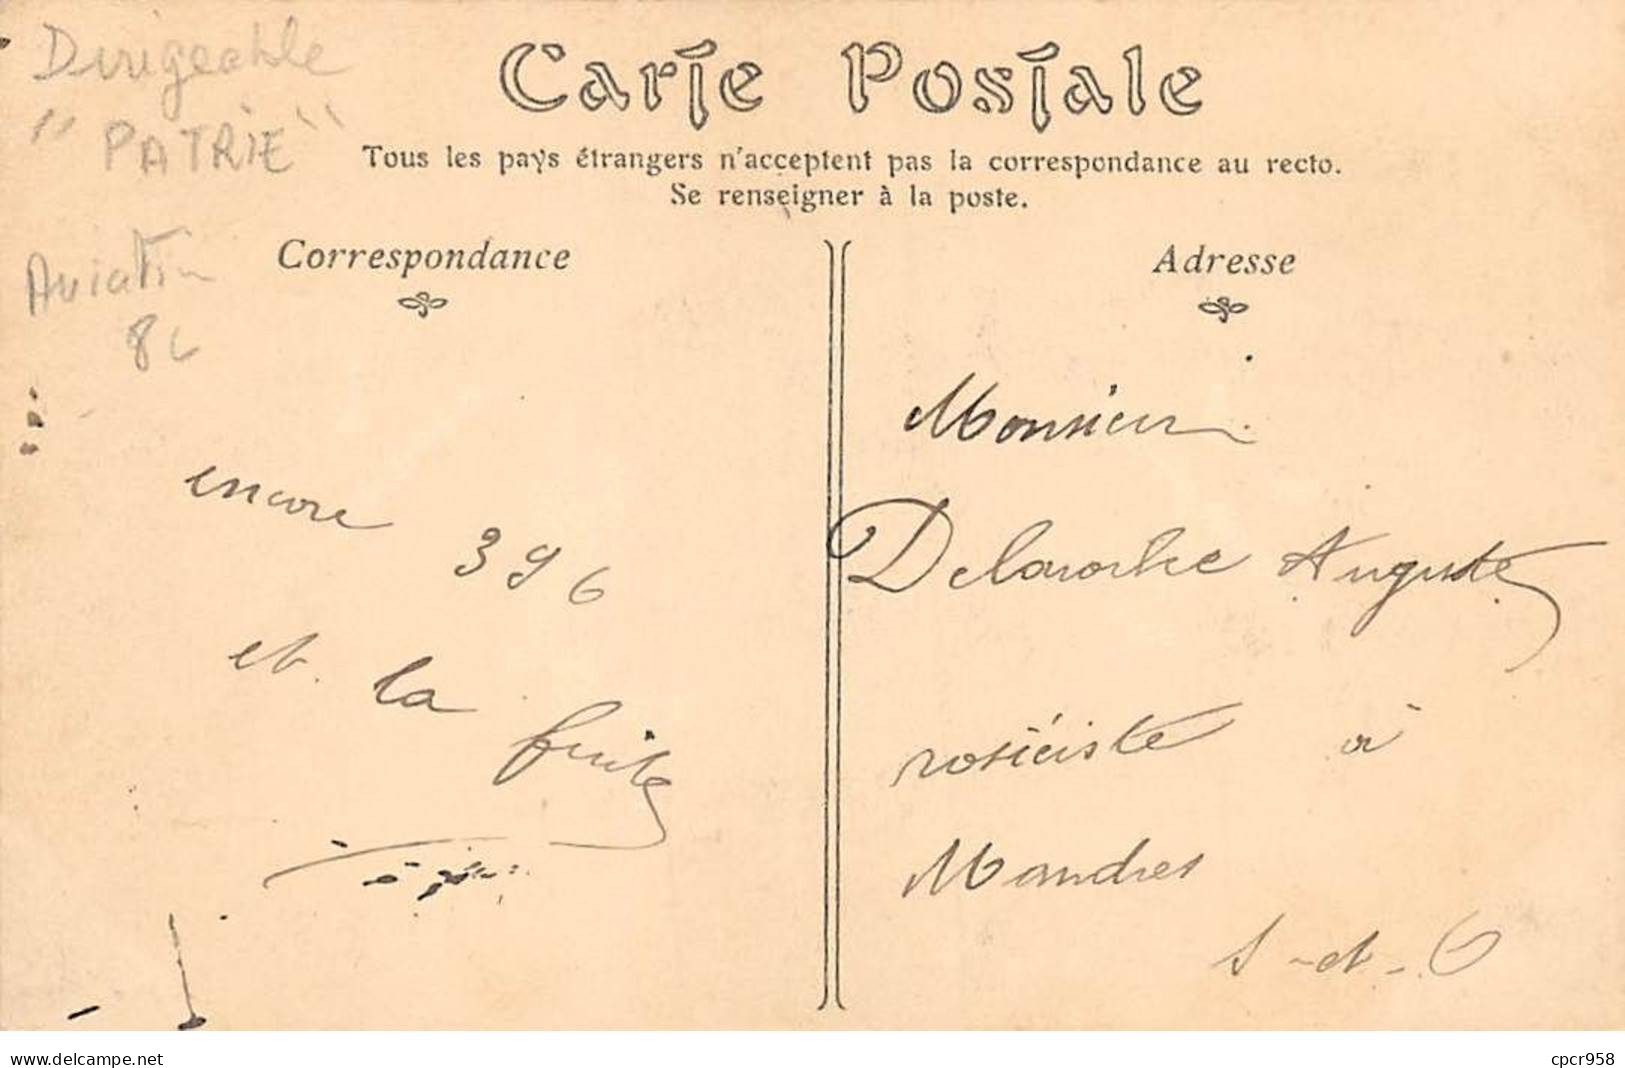 Dirigeable
"PATRIE"
Carte Postale
Tous les pays étrangers n'acceptent pas la correspondance au recto.
Se renseigner à la poste.
Aviation
8
Correspondance
Adresse
encore 396
et la fuite
Monsieur
Delaroche Auguste
rosiériste à
Mandres
S-et-O
www.delcampe.net
cpcr958